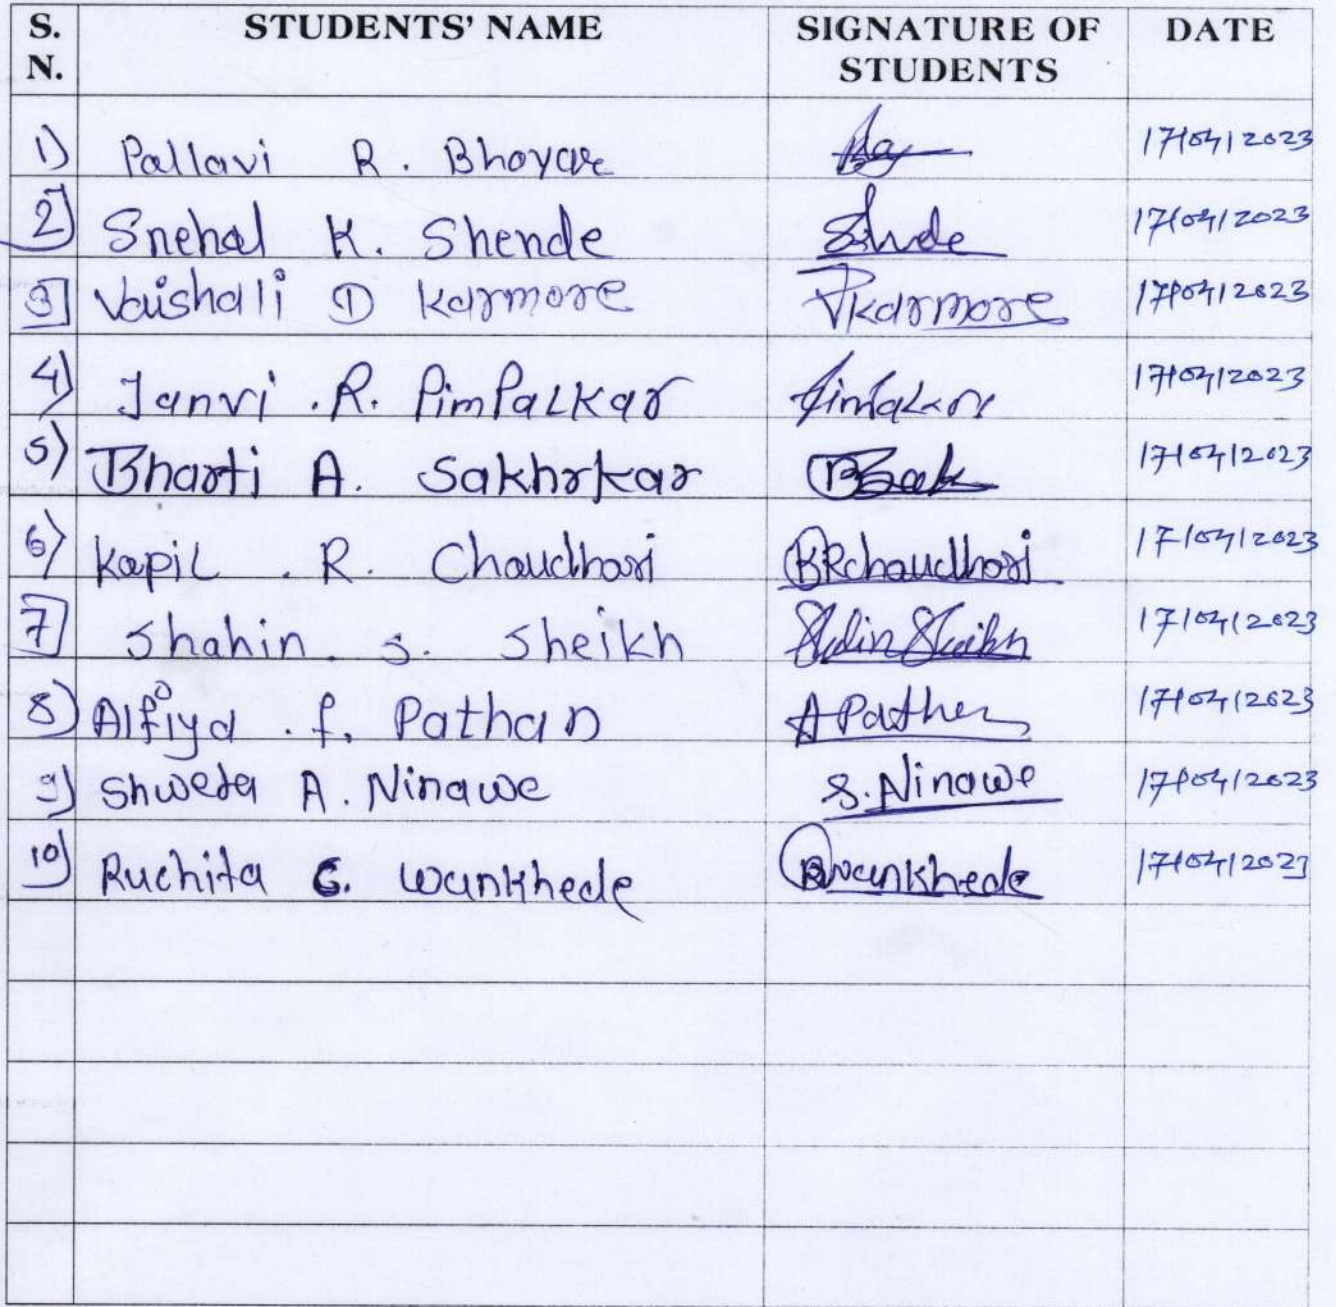 S. N. STUDENTS' NAME SIGNATURE OF STUDENTS DATE
1) Pallavi R. Bhoyar 17/04/2023
2] Snehal K. Shende Shnde 17/04/2023
3] Vaishali D Karmore VKarmore 17/04/2023
4) Janvi .R. PimPaLKar 17/04/2023
5) Bharti A. Sakhrkar 17/04/2023
6) KapiL . R. Chaudhari KRchaudhari 17/04/2023
7] Shahin. S. Sheikh Shahin Sheikh 17/04/2023
8) Alfiya . f. Pathan APathan 17/04/2023
9) Shweta A. Ninawe S.Ninawe 17/04/2023
10) Ruchita G. Wankhede RWankhede 17/04/2023